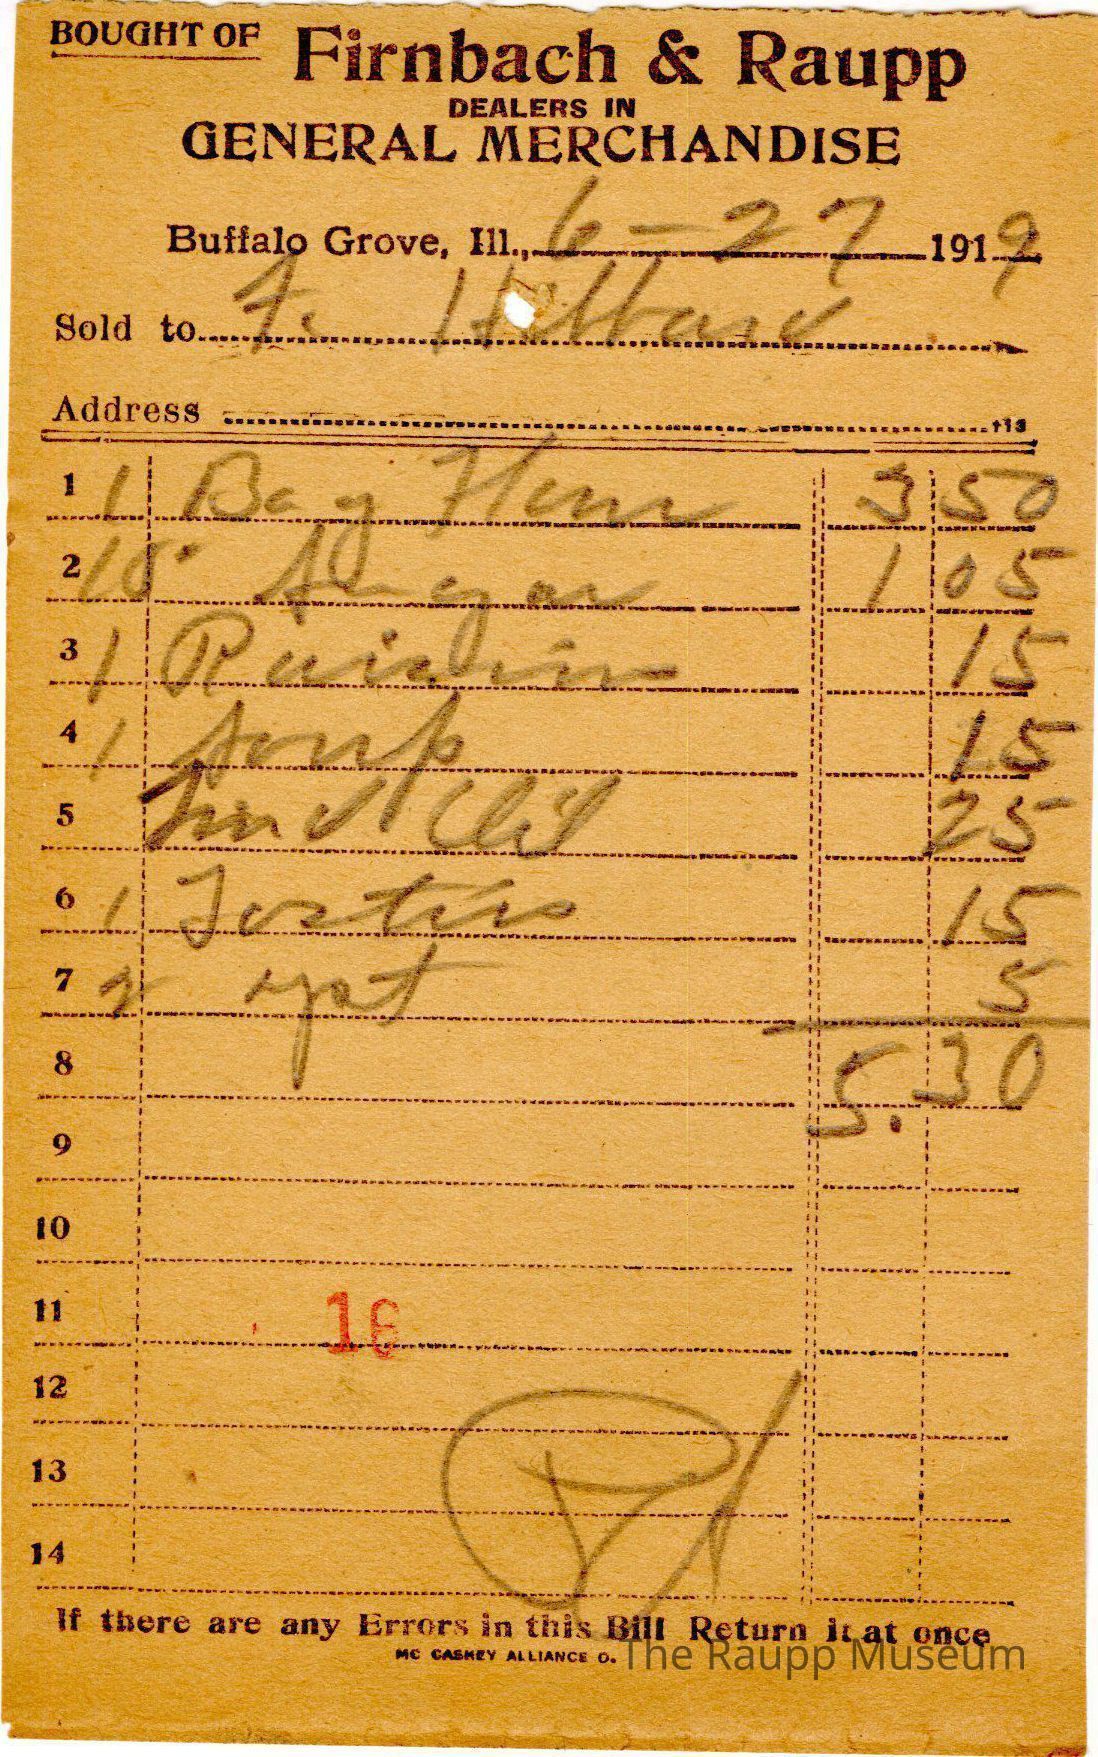 BOUGHT OF Firnbach & Raupp
DEALERS IN
GENERAL MERCHANDISE
Buffalo Grove, Ill., 6-27 1919
Sold to F. Hibbard
Address
113
1 1 Bag Flour 3 50
2 10 Sugar 1 05
3 1 Raisin 15
4 1 Soap 15
5 25
6 1 Tosties 15
7 2 yst 5
8 5.30
9
10
11 16
12
13
14
If there are any Errors in this Bill Return it at once
MC CASKEY ALLIANCE O.
The Raupp Museum